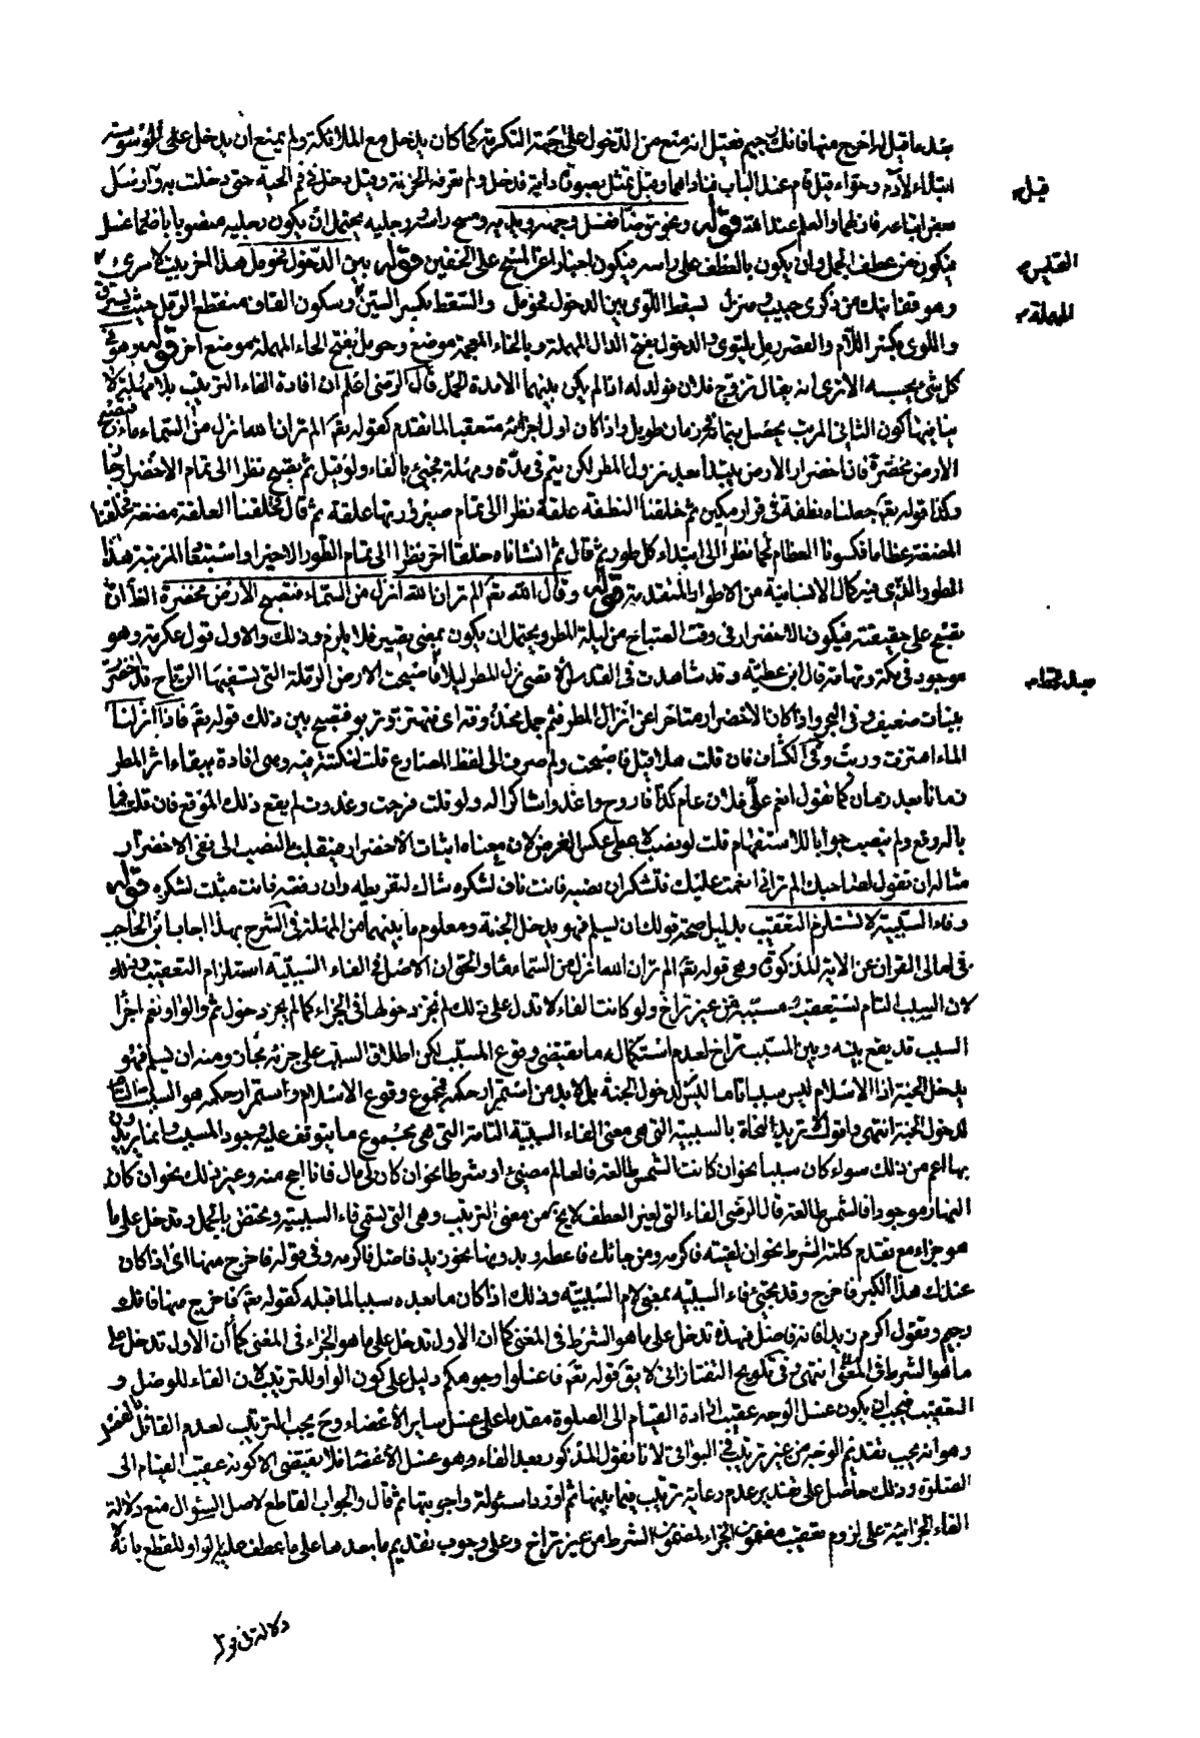 بعد ما قيل له اخرج منها فانك رجيم فقيل انه منع من الدخول على جهة التكرمة كما كان يدخل مع الملائكة ولم يمنع ان يدخل على الوسوسة
ابتلاء لآدم وحواء قيل قام عند الباب فناداهما وقيل تمثل بصورة دابة فدخل ولم تعرفه الخزنة وقيل دخل في فم الحية حتى دخلت به وارسل
قيل
بعض اتباعه فازلهما والعلم عند الله قوله ونحو توضأ فغسل وجهه ويديه ومسح راسه ورجليه يحتمل ان يكون رجليه منصوبا باضمار غسل
فيكون من عطف الجمل وان يكون بالعطف على راسه فيكون اخبارا عن المسح على الخفين قوله بين الدخول فحومل هذا اخر بيت لامرئ
القيس
وهو قفا نبك من ذكرى حبيب ومنزل بسقط اللوى بين الدخول فحومل والسقط بكسر السين وسكون القاف منقطع الرمل حيث يسترق
المهملة
واللوى بكسر اللام والقصر رمل يلتوى والدخول بفتح الدال المهملة وبالخاء المعجمة موضع وحومل بفتح الحاء المهملة موضع اخر قوله وهو في
كل شئ بحسبه الا ترى انه يقال تزوج فلان فولد له اذا لم يكن بينهما الا مدة الحمل قال الرضى اعلم ان افادة الفاء الترتيب بلا مهلة لا
ينافيها كون الثاني المرتب يحصل بتمامه في زمان طويل اذا كان اول اجزائه متعقبا لما تقدم كقوله تعم الم تر ان الله انزل من السماء ماء فتصبح
الارض مخضرة فان اخضرار الارض يبتدأ بعد نزول المطر لكن يتم في مدة ومهلة فجئ بالفاء ولو قيل ثم تصبح نظرا الى تمام الاخضرار جاز
وكذا قوله تعم جعلناه نطفة في قرار مكين ثم خلقنا النطفة علقة نظرا الى تمام صيرورتها علقة ثم قال فخلقنا العلقة مضغة فخلقنا
المضغة عظاما فكسونا العظام لحما نظرا الى ابتداء كل طور ثم قال ثم انشاناه خلقا اخر نظرا الى تمام الطور الاخير واستبعادا لمرتبة هذا
الطور الذي فيه كمال الانسانية من الاطوار المتقدمة قوله وقال الله تعم الم تر ان الله انزل من السماء فتصبح الارض مخضرة الظ ان
تصبح على حقيقته فيكون الاخضرار في وقت الصباح من ليلة المطر ويحتمل ان يكون بمعنى تصير فلا يلزم ذلك والاول قول عكرمة وهو
موجود في مكة وتهامة قال ابن عطية وقد شاهدت في السوس الاقصى نزل المطر ليلا فاصبحت الارض الرملة التي تسفيها الرياح قد اخضرت
بنبات ضعيف وفي البحر واذا كان الاخضرار متاخرا عن انزال المطر فثم جمل محذوفة اى فتهتز وتربو فتصبح يبين ذلك قوله تعم فاذا انزلنا
الماء اهتزت وربت وفي الكشاف فان قلت هلا قيل فاصبحت ولم صرف الى لفظ المضارع قلت لنكتة فيه وهى افادة بقاء اثر المطر
زمانا بعد زمان كما تقول انعم على فلان عام كذا فاروح واغدو شاكرا له ولو قلت فرحت وغدوت لم يقع ذلك الموقع فان قلت فما
باله رفع ولم ينصب جوابا للاستفهام قلت لو نصب لاعطى عكس الغرض لان معناه اثبات الاخضرار فينقلب بالنصب الى نفى الاخضرار
مثاله ان تقول لصاحبك الم تر انى انعمت عليك فتشكر ان نصبته فانت ناف لشكره شاك لتفريطه وان رفعته فانت مثبت لشكره قوله
وفاء السببية لا تستلزم التعقيب بدليل صحة قولك ان يسلم فهو يدخل الجنة ومعلوم ما بينهما من المهلة في الشرح بهذا اجاب ابن الحاجب
في امالى القران عن الاية المذكورة وهى قوله تعم الم تر ان الله انزل من السماء ماء والحق ان الاصل في الفاء السببية استلزام التعقيب وذلك
لان السبب التام يستعقب مسببه من غير تراخ ولو كانت الفاء لا تدل على ذلك لم يجز دخولها في الجزاء كما لم يجز دخول ثم والواو نعم اجزاء
السبب قد يقع بينه وبين المسبب تراخ لعدم استكماله ما يقتضى وقوع المسبب لكن اطلاق السبب على جزئه مجاز ومنه ان يسلم فهو
يدخل الجنة اذ الاسلام ليس سببا تاما لدخول الجنة بل لابد من استمرار حكمه فمجموع وقوع الاسلام واستمرار حكمه هو السبب التام
لدخول الجنة انتهى واقول لا تريد النحاة بالسببية التى هى معنى الفاء السببية التامة التى هى مجموع ما يتوقف عليه وجود المسبب وانما يريدون
بها اعم من ذلك سواء كان سببا نحو ان كانت الشمس طالعة فالعالم مضيئ او شرطا نحو ان كان لى مال فانا احج منه وغير ذلك نحو ان كان
النهار موجودا فالشمس طالعة قال الرضى الفاء التى لغير العطف لا يخ من معنى الترتيب وهى التى تسمى فاء السببية ويختص بالجمل وتدخل على ما
هو جزاء مع تقدم كلمة الشرط نحو ان لقيته فاكرمه ومن جائك فاعطه وبدونها نحو زيد فاضل فاكرمه وفي قوله فاخرج منها اى اذا كان
عندك هذا الكبر فاخرج وقد يجئ فاء السببية بمعنى لام السببية وذلك اذا كان ما بعده سببا لما قبله كقوله تعم فاخرج منها فانك
رجيم وتقول اكرم زيدا فانه فاضل فهذه تدخل على ما هو الشرط في المعنى كما ان الاولى تدخل على ما هو الجزاء في المعنى كما ان الاول تدخل على
ما هو الشرط في المعنى انتهى وفي تلويح التفتازانى لا يق قوله تعم فاغسلوا وجوهكم دليل على كون الواو للترتيب لان الفاء للوصل و
التعقيب فيجب ان يكون غسل الوجه عقيب ارادة القيام الى الصلوة مقدما على غسل ساير الاعضاء وح يجب الترتيب لعدم القائل بالفصل
وهو انه يجب تقديم الوجه من غير ترتيب في البواقى لانا نقول المذكور بعد الفاء هو غسل الاعضاء فلا يقتضى الا كونه عقيب القيام الى
الصلوة وذلك حاصل على تقدير عدم رعاية ترتيب فيما بينها ثم اورد اسئولة واجوبتها ثم قال والجواب القاطع لاصل السؤال منع دلالة
الفاء الجزائية على لزوم تعقيب مضمون الجزاء لمضمون الشرط من غير تراخ وعلى وجوب تقديم ما بعدها على ما عطف عليه بالواو للقطع بانه